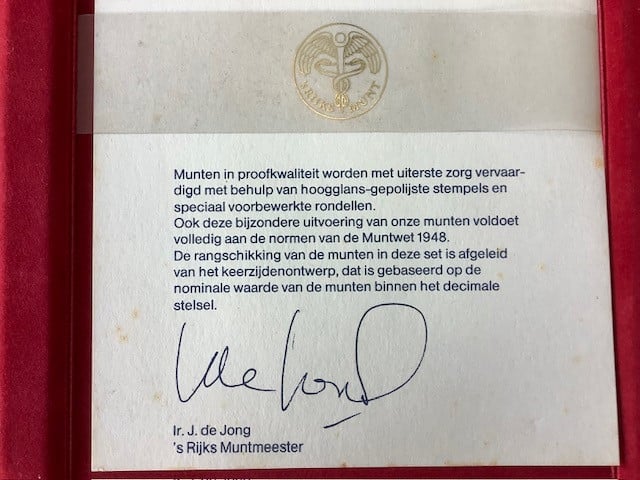 'S RIJKS MUNT
Munten in proofkwaliteit worden met uiterste zorg vervaar-
digd met behulp van hoogglans-gepolijste stempels en
speciaal voorbewerkte rondellen.
Ook deze bijzondere uitvoering van onze munten voldoet
volledig aan de normen van de Muntwet 1948.
De rangschikking van de munten in deze set is afgeleid
van het keerzijdenontwerp, dat is gebaseerd op de
nominale waarde van de munten binnen het decimale
stelsel.
Ir. J. de Jong
's Rijks Muntmeester